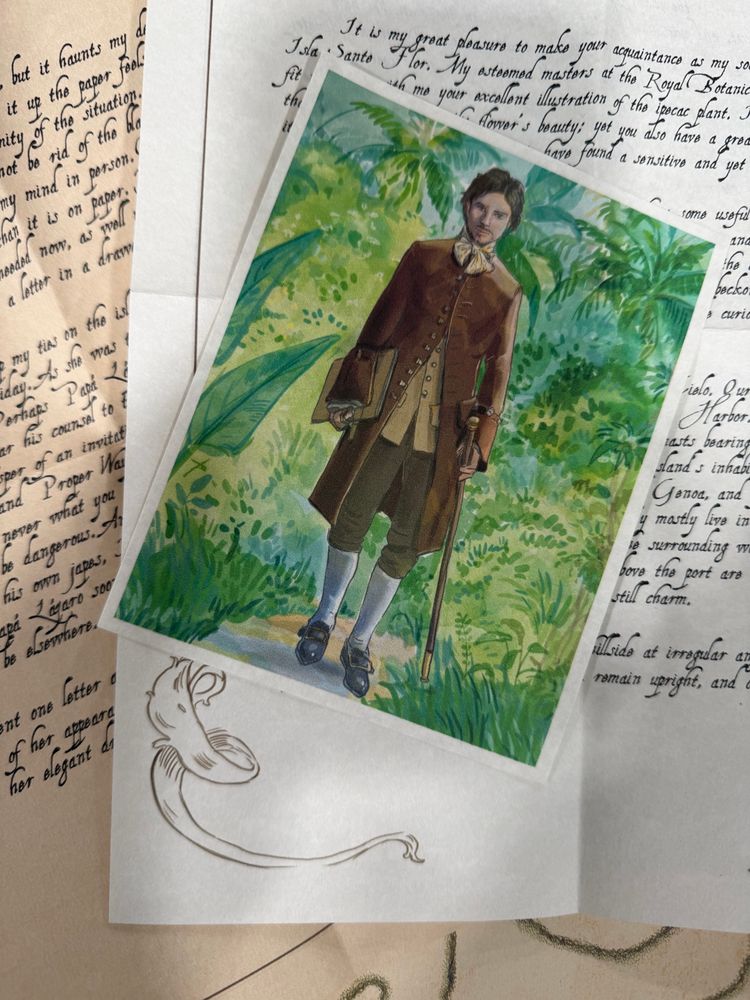 but it haunts my
it up the paper feels
nity of the situation.
not be rid of the
my mind in person.
than it is on paper.
needed now, as well
a letter in a
my ties on the
iday. As she was
Perhaps Papá
ar his counsel to
sper of an invitat
and Proper
never what you
be dangerous.
his own japes,
apá Lázaro soo
be elsewhere.
ent one letter
of her appeara
her elegant
It is my great pleasure to make your acquaintance as my so
Isla Sante Flor. My esteemed masters at the Royal Botanic
fit with me your excellent illustration of the ipecac plant.
the flower's beauty; yet you also have a grea
have found a sensitive and yet
some useful
and
the
becko
curio
ielo. Our
Harbor.
masts bearing
sland's inhabi
Genoa, and
mostly live in
surrounding
bove the port are
still charm.
hillside at irregular an
remain upright, and